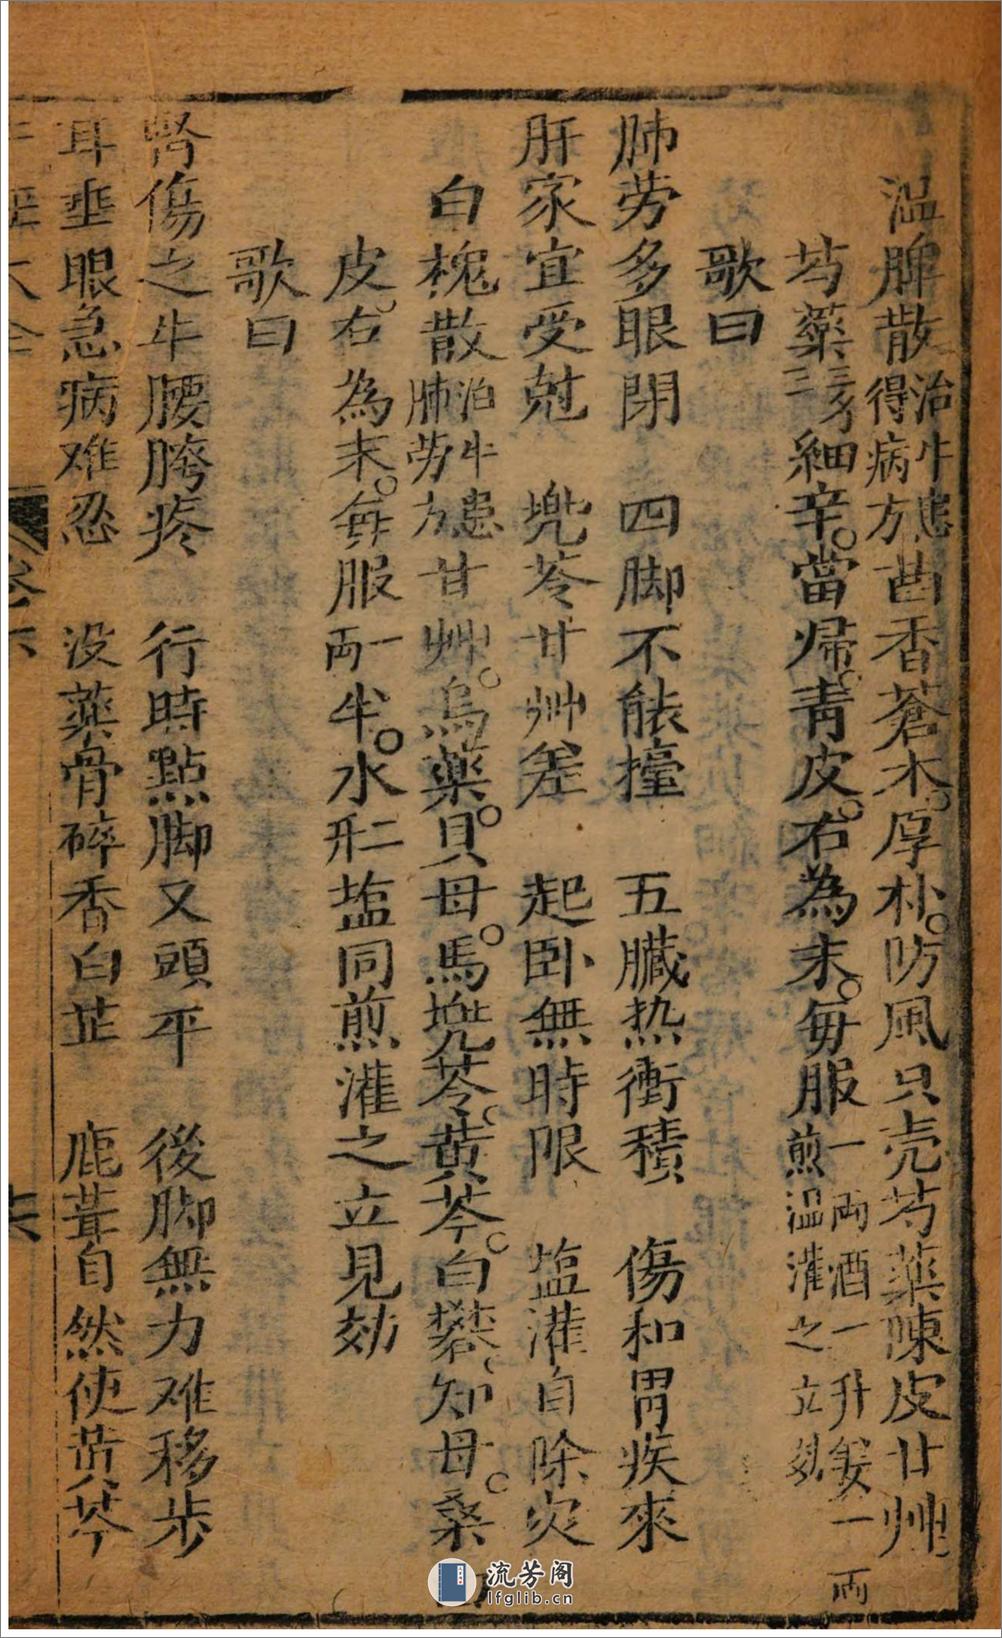 温脾散治牛患得病方茴香蒼木厚朴防風只壳芍藥陳皮甘艸
芍藥三分細辛當帰青皮右為末毎服一両酒一升姜一両煎温灌之立効
歌曰
肺劳多眼閉　四脚不能擡　五臓热衝積　傷和胃疾來
肝家宜受尅　兠苓甘艸差　起卧無時限　塩灌自除灾
白槐散治牛患肺劳方甘艸烏藥貝母馬兠苓黄芩白礬知母桑
皮右為末毎服一両半水二形塩同煎灌之立見効
歌曰
腎傷之牛腰胯疼　行時點脚又頭平　後脚無力难移步
耳垂眼急病难忍　没藥骨碎香白芷　鹿茸自然使黄芩
牛經大全
卷下
流芳阁
lfglib.cn